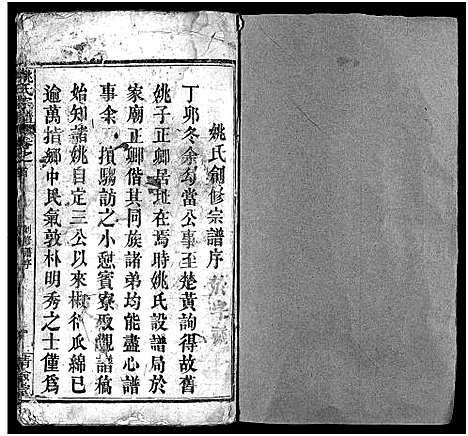 姚氏創修宗譜序
丁卯冬余勾當公事至楚黃詢得故舊
姚子正卿居址在焉時姚氏設譜局於
家廟正卿偕其同族諸弟均能盡心譜
事余一損騶訪之小憩賓寮取觀譜稿
始知諸姚自定三公以來椒衍瓜綿已
逾萬指鄉中民氣敦朴明秀之士僅爲
姚氏宗譜 卷之首
創修譜序